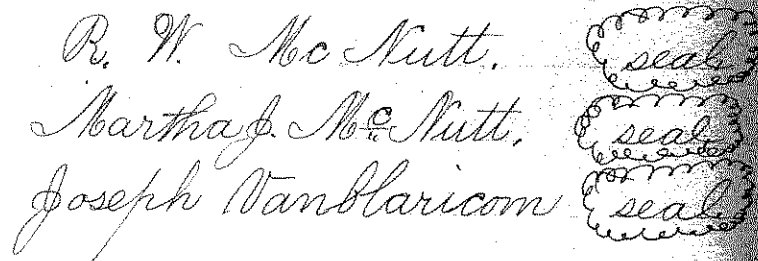 R. W. Mc Nutt. seal
Martha J. Mc Nutt. seal
Joseph Vanblaricom seal